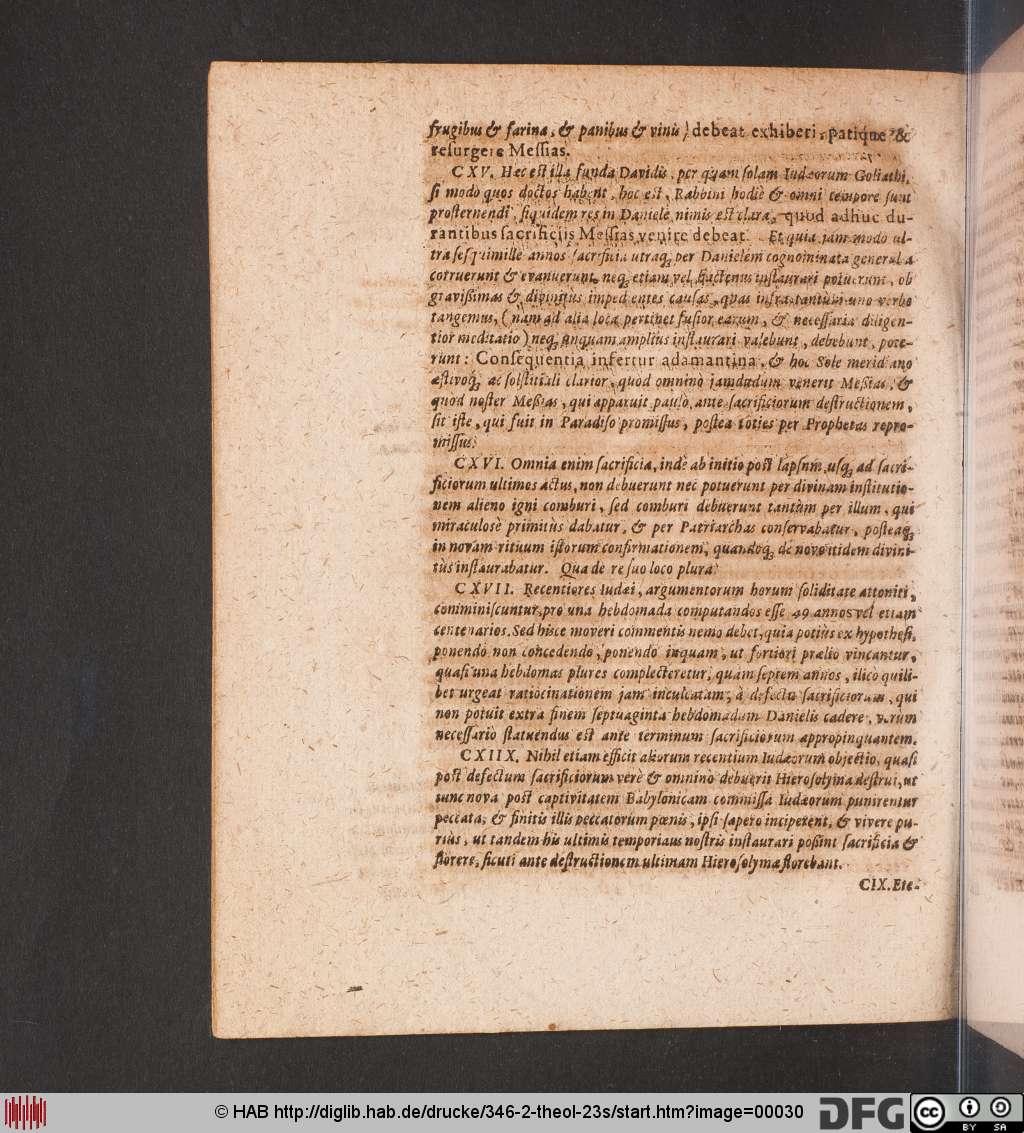 frugibus & farina, & panibus & vinis) debeat exhiberi, patique &
resurgere Messias.
CXV. Hæc est illa funda Davidis, per quam solam Iudæorum Goliathi,
si modo quos doctos habent, hoc est, Rabbini hodiè & omni tempore sunt
prosternendi, siquidem res in Daniele nimis est clara, quod adhuc du-
rantibus sacrificiis Messias venire debeat. Et quia jam modo ul-
tra sesquimille annos sacrificia utraq; per Danielem cognominata generalia
corruerunt & evanuerunt, neq; etiam vel hactenus instaurari potuerunt, ob
gravissimas & divinitùs impedientes causas, quas infra tantùm uno verbo
tangemus, (nam ad alia loca pertinet fusior earum, & necessaria diligen-
tior meditatio) neq; unquam amplius instaurari valebunt, debebunt, pote-
runt: Consequentia infertur adamantina, & hoc Sole meridiano
æstivoq; ac solstitiali clarior, quod omninò jamdudum venerit Messias, &
quod noster Messias, qui apparuit paulò ante sacrificiorum destructionem,
sit iste, qui fuit in Paradiso promissus, postea toties per Prophetas repro-
missus.
CXVI. Omnia enim sacrificia, inde ab initio post lapsum usq; ad sacri-
ficiorum ultimos actus, non debuerunt nec potuerunt per divinam institutio-
nem alieno igni comburi, sed comburi debuerunt tantùm per illum, qui
miraculosè primitùs dabatur, & per Patriarchas conservabatur, posteaq;
in novam rituum istorum confirmationem, quandoq; de novo itidem divini-
tùs instaurabatur. Qua de re suo loco plura.
CXVII. Recentiores Iudæi, argumentorum horum soliditate attoniti,
comminiscuntur, pro una hebdomada computandos esse 49 annos vel etiam
centenarios. Sed hisce moveri commentis nemo debet, quia potiùs ex hypothesi,
ponendo non concedendo, ponendo inquam, ut fortiori prælio vincantur,
quasi una hebdomas plures complecteretur, quàm septem annos, ilicò quili-
bet urgeat ratiocinationem jam inculcatam, à defectu sacrificiorum, qui
non potuit extra finem septuaginta hebdomadum Danielis cadere, verum
necessariò statuendus est ante terminum sacrificiorum appropinquantem.
CXIIX. Nihil etiam efficit aliorum recentium Iudæorum objectio, quasi
post defectum sacrificiorum verè & omninò debuerit Hierosolyma destrui, ut
tunc nova post captivitatem Babylonicam commissa Iudæorum punirentur
peccata; & finitis illis peccatorum pœnis, ipsi sapere inciperent, & vivere pu-
rius, ut tandem his ultimis temporibus nostris instaurari possint sacrificia &
florere, sicuti ante destructionem ultimam Hierosolymæ florebant.
CIX. Ete-
© HAB http://diglib.hab.de/drucke/346-2-theol-23s/start.htm?image=00030
DFG
cc
BY SA